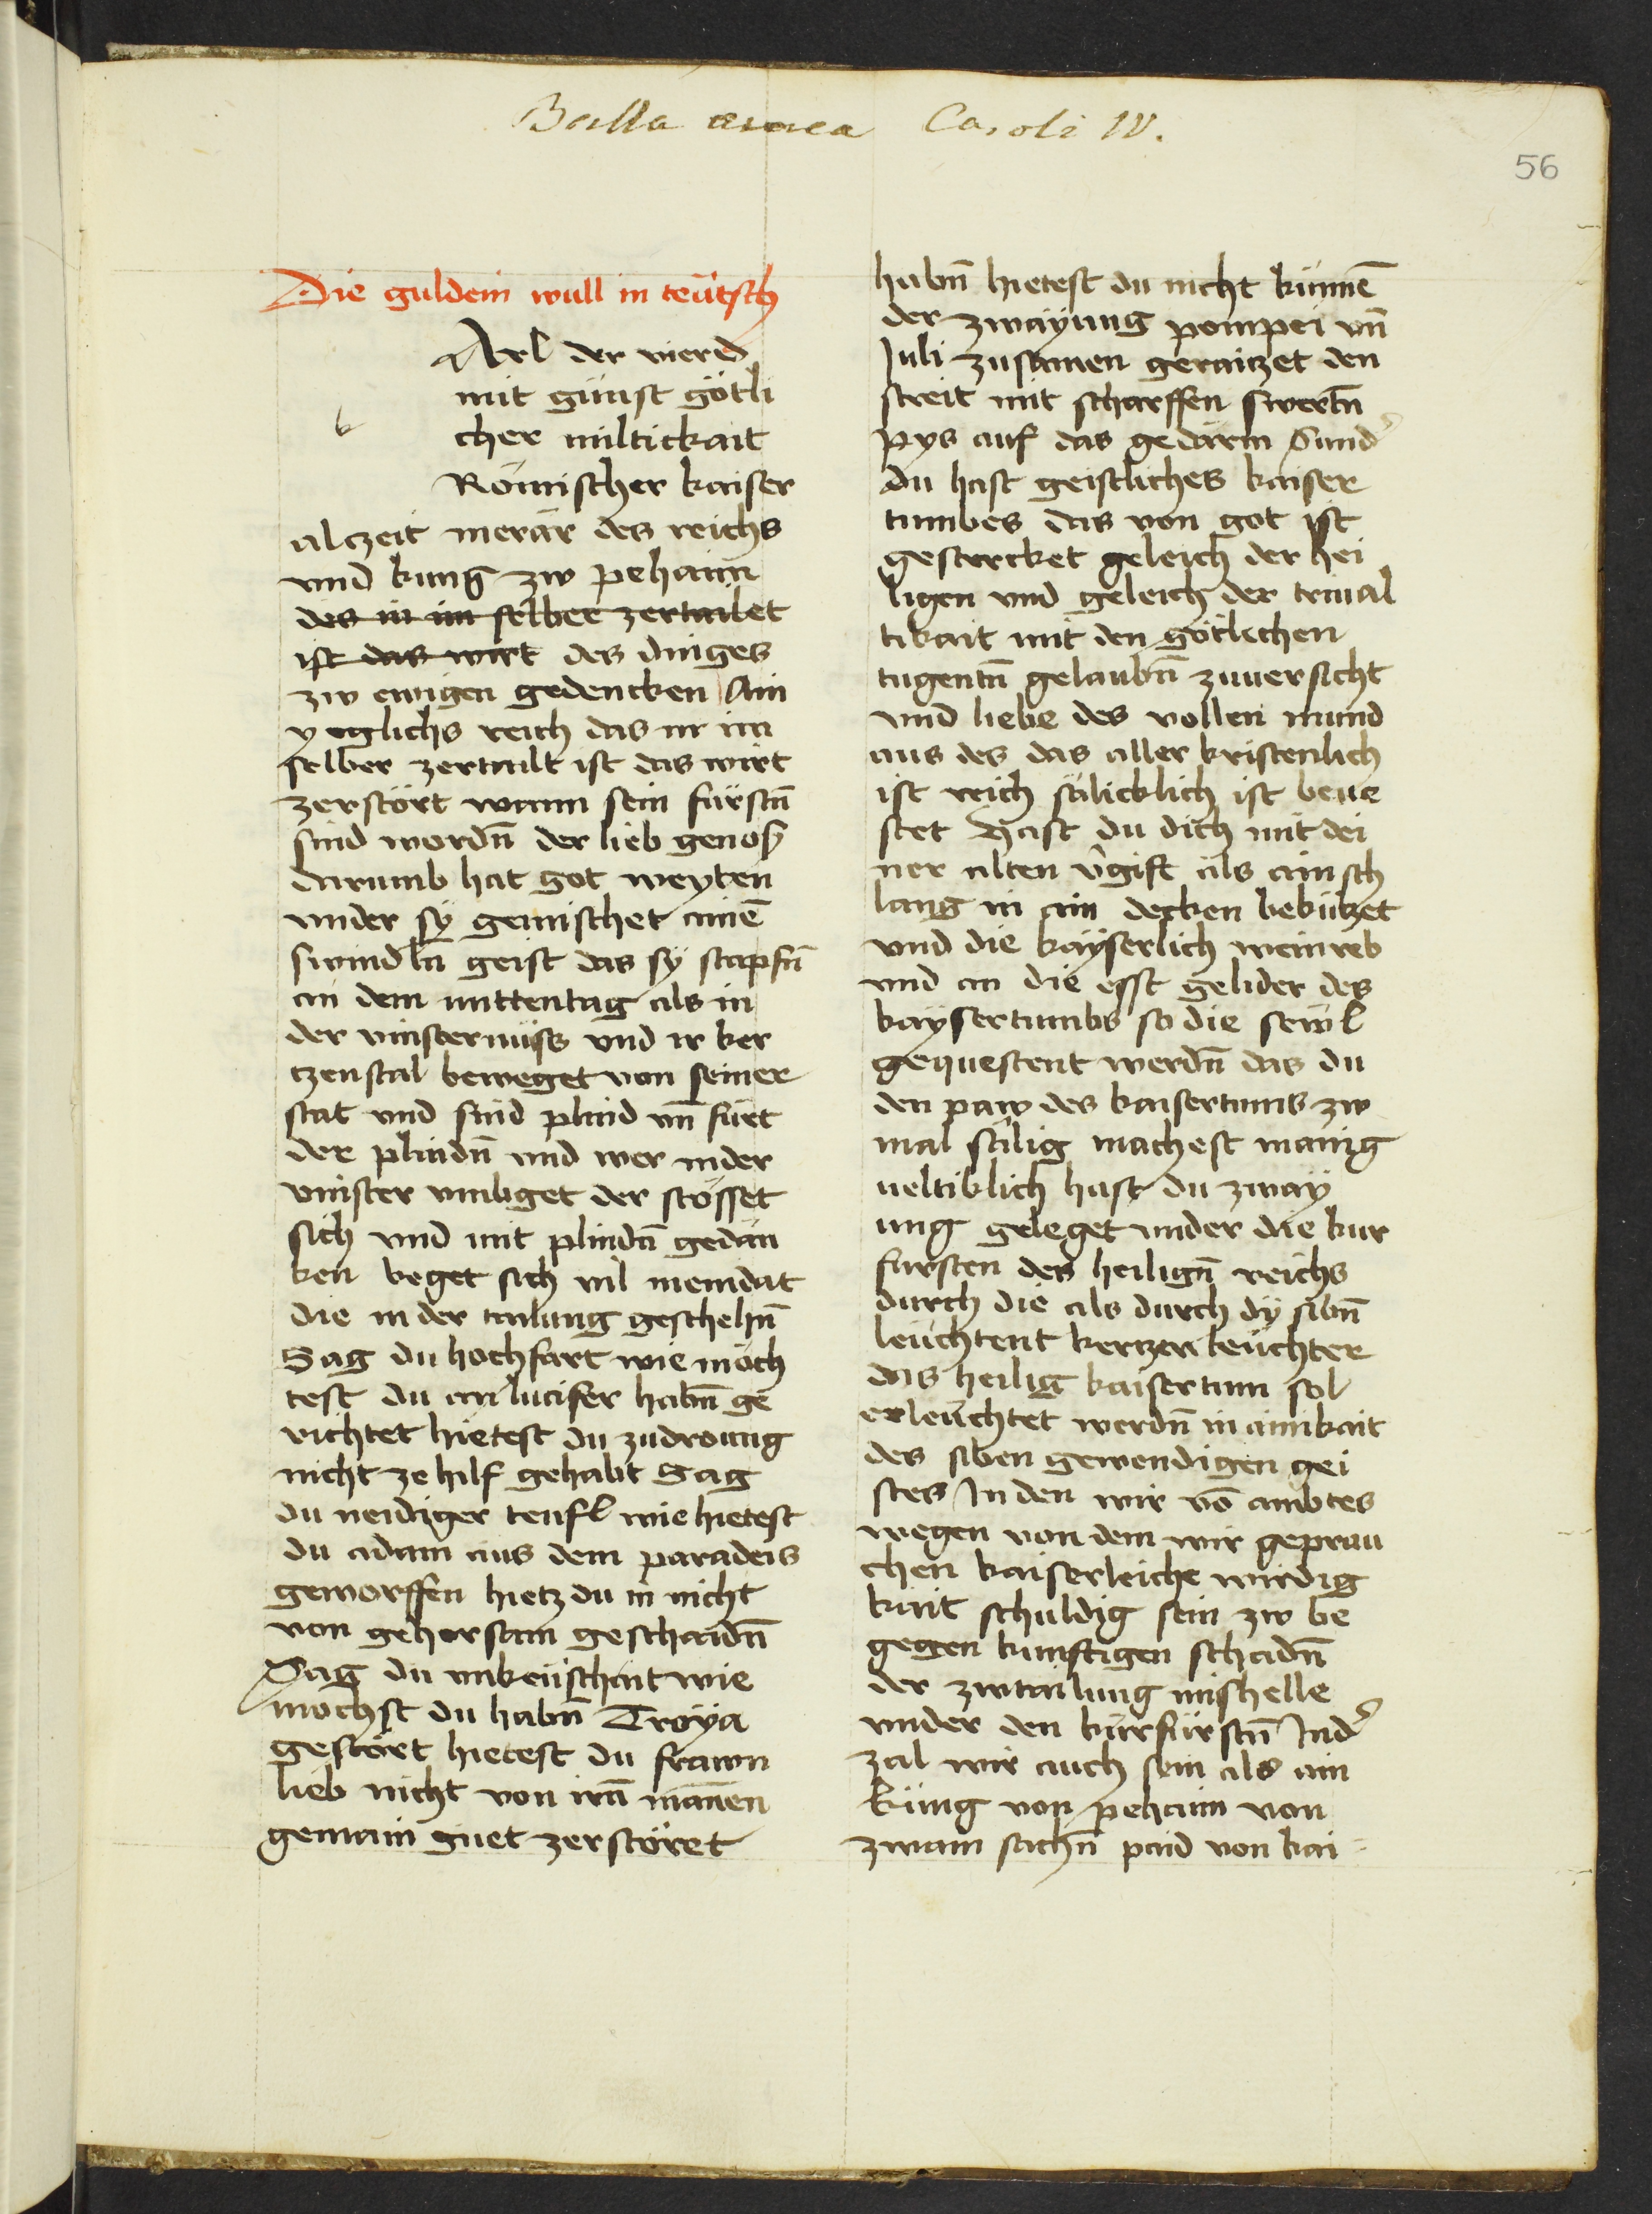 Bulla aurea Caroli IV.
56
Die guldein wull in teütsch
Arl der vierd
mit günst götli
k
cher miltickait
Römischer kaiser
alczeit merär des reichs
vnd kung zw pehaim
des in im selber zertailet
ist das wirt des dinges
zw ewigen gedencken Ain
yeglichs reich das in im
selber zertailt ist das wirt
zerstört wann sein fürstn̄
sind wordn̄ der lieb genoß
darumb hat got weyten
vnder sÿ gemischet ainē
swindln geist das sÿ stapfn̄
an dem mittentag als in
der vinsternüss vnd ir ker
tzenstal beweget von seiner
stat vnd sind plind vn̄ fürt
der plindn̄ vnd wer inder
vinster vmbget der stösset
sich vnd mit plindn̄ gedän
ken beget sich vil meindat
die in der tailung geschehn̄
Sag du hochfart wie möch
test du an lucifer habn̄ ge
richtet hietest du zudroung
nicht ze hilf gehabt Sag
du neidiger teufl wie hietest
du adam aus dem paradeis
geworffen hietz du in nicht
von gehorsam geschaidn̄
Sag du vnkeüschait wie
möchst du habn̄ Troÿa
gestört hietest du frawn
lieb nicht von irn̄ mānen
gemain guet zerstöret
habn̄ hietest du nicht künnē
der zwaÿung pompei vn̄
Juli zusamen geraitzet den
streit mit scharffen swertn̄
pys auf das gedärm Sund᾽
du hast geistliches kaiser
tumbes das von got ist
gestercket geleich der hei
ligen vnd geleich der trival
tikait mit den götlichen
tugentn̄ gelaubn̄ zuuersicht
vnd liebe des vollen mund
aus des das aller kristenlich
ist reich sälicklich ist beue
stet Hast du dich mit dei
ner alten v᾽gift als ain sch
lang in ain decken bekützet
vnd die kaÿserlich weinreb
vnd an die esst gelider des
kaÿsertumbs so die sewl
gequestent werdn̄ das du
den paw des kaisertums zw
mal sälig machest manig
ueltiklich hast du zwaÿ
ung geleget vnder die kur
fursten des heilign̄ reichs
durch die als durch dÿ sibn̄
leüchtent kerzen leüchter
das heilig kaisertum sol
erleüchtet werdn̄ in ainikait
des siben gewendigen gei
stes In den wir vō ambtes
wegen von dem wir geprau
chen kaiserleiche wirdig
kait schuldig sein zw be
gegen kunftigen schadn̄
der zwtailung mishelle
vnder den kürfürstn̄ Ind᾽
zal wir auch sein als ain
küng von pehaim von
zwain sachn̄ paid von kai-